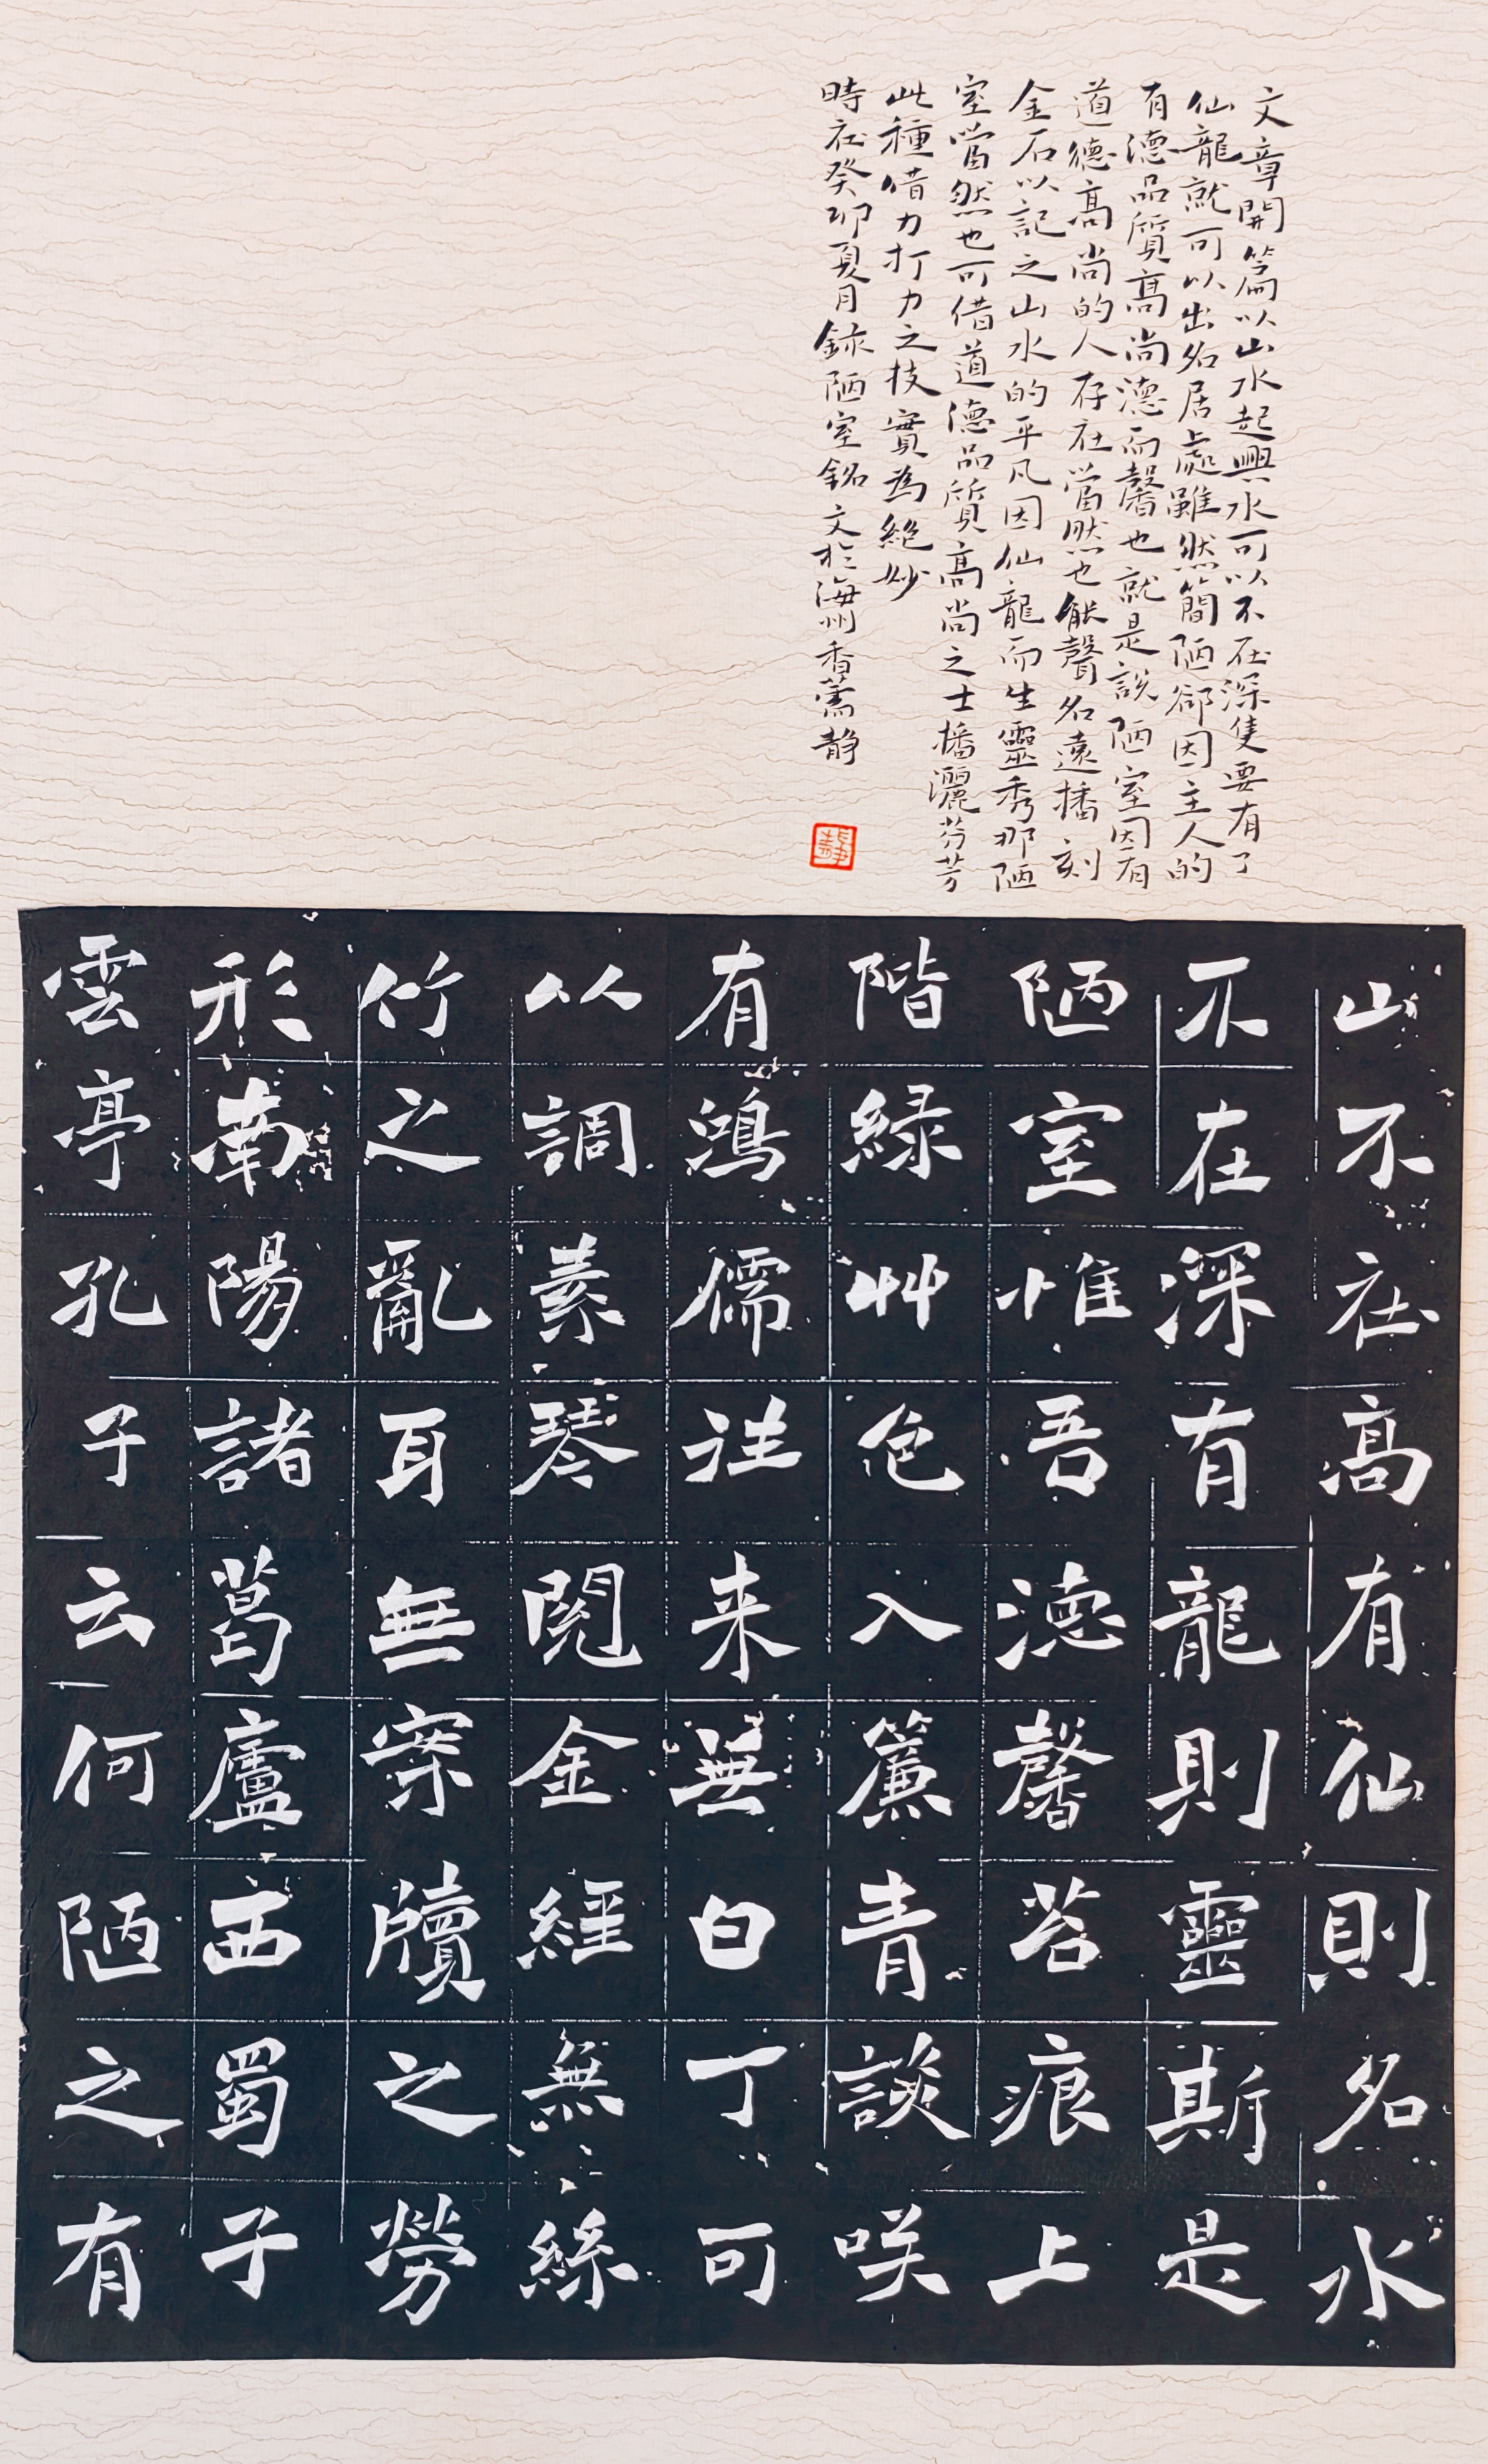 文章開篇以山水起興水可以不在深隻要有了
仙龍就可以出名居處雖然簡陋郤因主人的
有德品質高尚德而馨也就是說陋室因有
道德高尚的人存在當然也能聲名遠播刻
金石以記之山水的平凡因仙龍而生靈秀那陋
室當然也可借道德品質高尚之士播灑芬芳
此種借力打力之技實為絕妙
時在癸卯夏月錄陋室銘文於海州香靜
靜
山不在高有仙則名水
不在深有龍則靈斯是
陋室惟吾德馨苔痕上
階緑艸色入簾青談咲
有鴻儒往来無白丁可
以調素琴閱金經無絲
竹之亂耳無案牘之勞
形南陽諸葛廬西蜀子
雲亭孔子云何陋之有